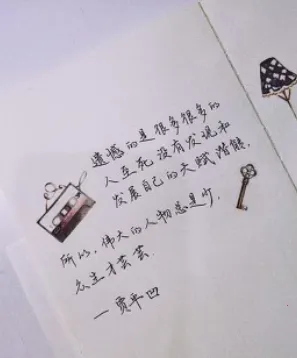 遗憾的是很多很多的
人至死没有发现和
发展自己的天赋潜能,
所以,伟大的人物总是少,
众生才芸芸.
一贾平凹